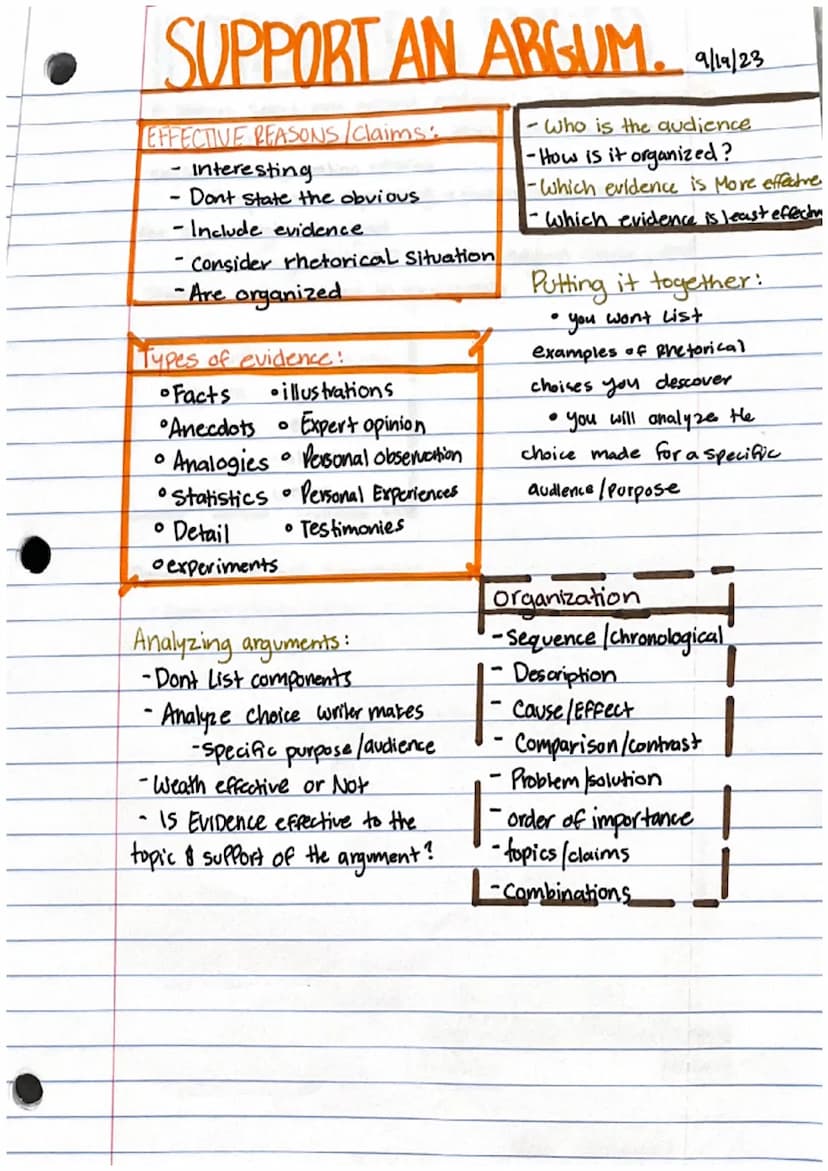 SUPPORT AN ARGUM.
9/19/23
EFFECTIVE REASONS/Claims:
- Interesting
- Dont state the obvious
- Include evidence
- Consider rhetorical situation
- Are organized
- Who is the audience
- How is it organized?
- Which evidence is More effective
- Which evidence is least effectiv
Putting it together:
• you wont List
examples of Rhetorical
choises you descover
• you will analyze the
choice made for a specific
audience/purpose
Types of evidence:
• Facts • illustrations
• Anecdots • Expert opinion
• Analogies • Personal observation
• Statistics • Personal Experiences
• Detail • Testimonies
• experiments
Analyzing arguments:
- Dont List components
- Analyze choice writer makes
- Specific purpose/audience
- Weath effective or Not
- Is EVIDENCE effective to the
topic & support of the argument?
organization
- Sequence/chronological
- Description
- Cause/Effect
- Comparison/contrast
- Problem/solution
- order of importance
- topics/claims
- Combinations